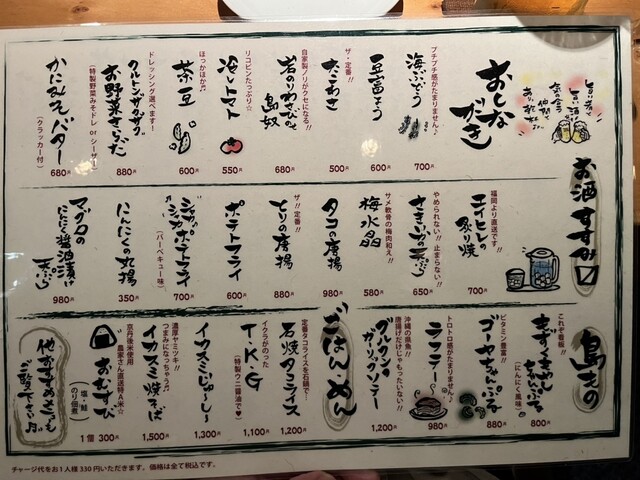 おしながき
プチプチ感がたまりません♪
海ぶどう
700円
豆富よう
600円
ザ・定番!!
たこわさ
500円
自家製ノリがクセになる!!
岩のりわさびの島奴
680円
リコピンたっぷり☆
冷しトマト
550円
ほっかほか♬
茶豆
600円
ドレッシング選べますー!
クルトンサクサク
お野菜さらだ
(特製野菜みそドレ or シーザー)
880円
かにみそバター
(クラッカー付)
680円
お酒すすみ口
福岡より直送です!!
エイヒレの炙り焼
700円
やめられない!!止まらない!!
さきいかの天ぷら
650円
サメ軟骨の梅肉和え!!
梅水晶
580円
タコの唐揚
980円
ザ!!定番!!
とりの唐揚
880円
ポテトフライ
600円
シャカシャカポテトフライ
(バーベキュー味)
700円
にんにくの丸揚
350円
マグロの
にんにく醤油漬け
天ぷら
980円
島もの
これぞ看板!!
もずくもやし
ちゃんぷる
(にんにく風味)
800円
ビタミン豊富!!
ゴーヤちゃんぷる
880円
トロトロ感がたまりません♪
ラフテー
980円
沖縄の県魚!!
唐揚げだけじゃもったいない!!
グルクンの
ガーリックソテー
1,200円
ごはん・めん
定番タコライスを石鍋で!
石焼タコライス
1,200円
イクラがのった
T・K・G
(特製ウニ醤油で♥)
1,100円
イカスミじゅ〜し〜
1,300円
濃厚ヤミツキ!!
つまみになっちゃう♬
イカスミ焼そば
1,500円
京丹後米使用
農家さん直送特A米☆
おむすび
塩・鮭
のり佃煮
1個 300円
他おすすめもご覧下さい
チャージ代をお1人様330円いただきます。価格は全て税込です。